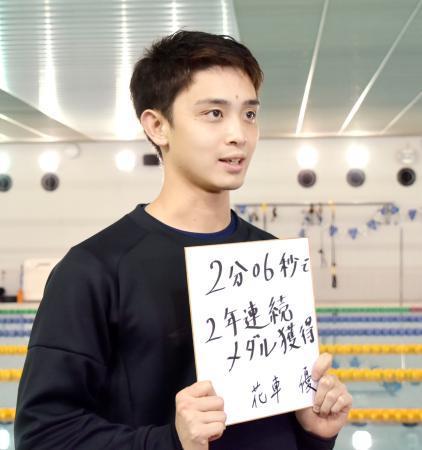 2分06秒で
2年連続
メダル獲得
花車 優